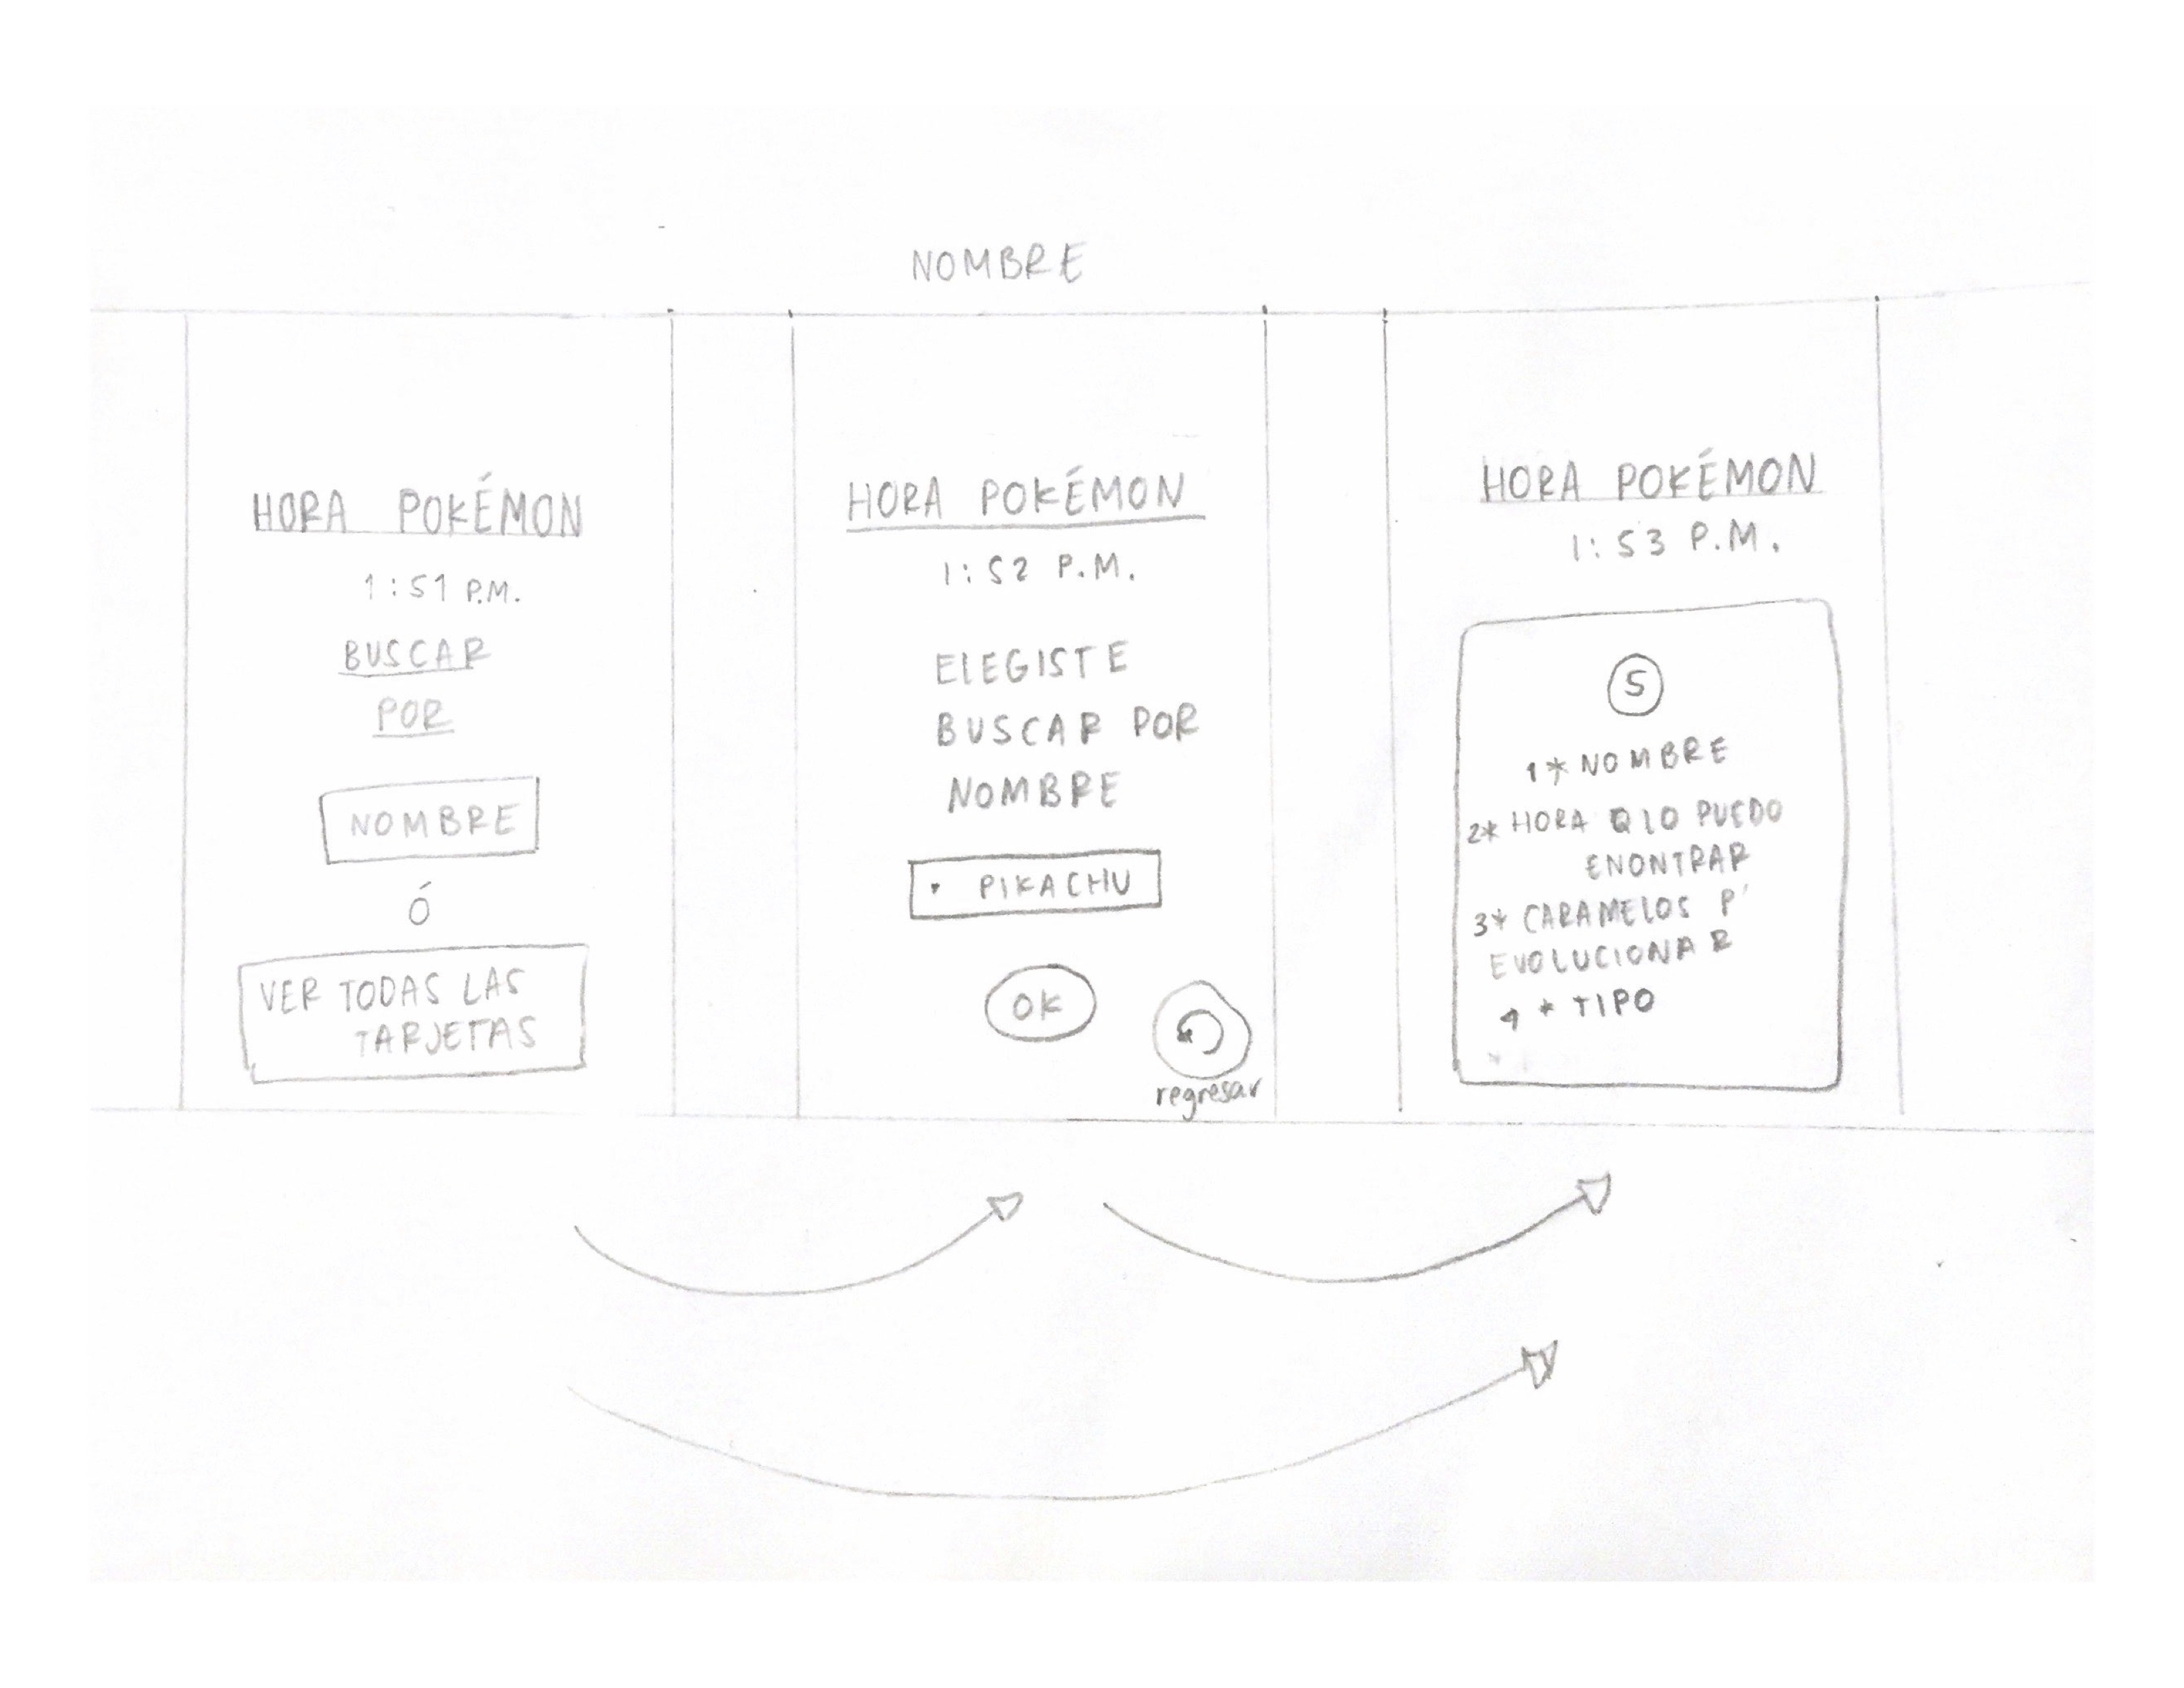 NOMBRE
HORA POKÉMON
1:51 P.M.
BUSCAR
POR
NOMBRE
Ó
VER TODAS LAS
TARJETAS
HORA POKÉMON
1:52 P.M.
ELEGISTE
BUSCAR POR
NOMBRE
• PIKACHU
OK
regresar
HORA POKÉMON
1:53 P.M.
5
1* NOMBRE
2* HORA Q LO PUEDO
ENONTRAR
3* CARAMELOS P'
EVOLUCIONAR
4 * TIPO